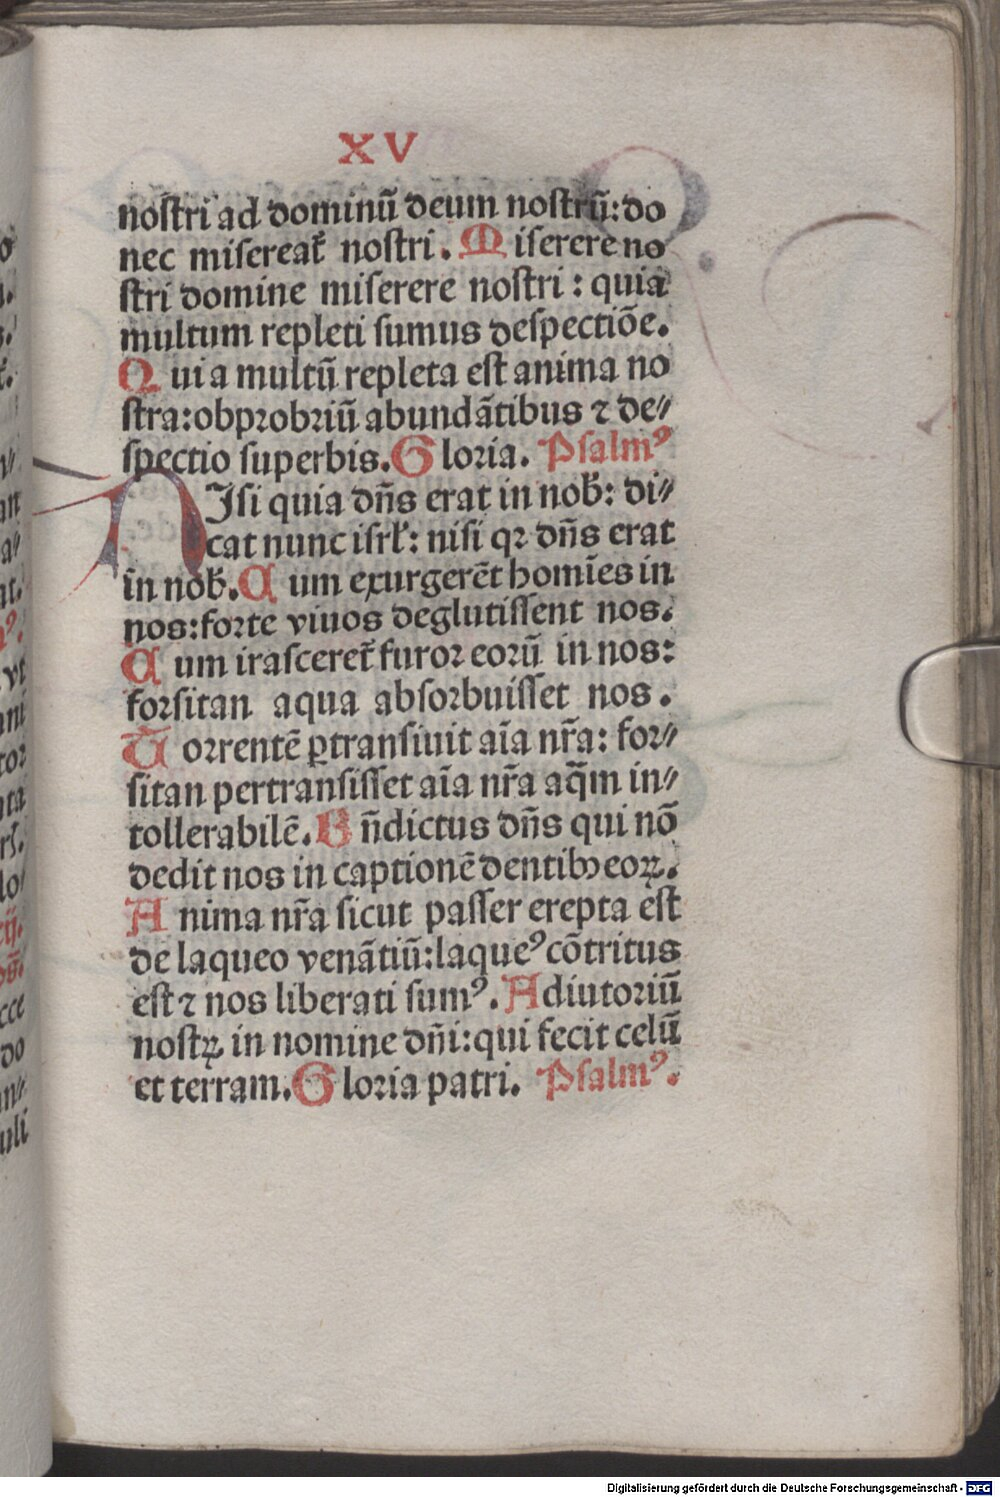 XV
noſtri ad dominū deum noſtrū: do
nec miſereat᷑ noſtri. Miſerere no
ſtri domine miſerere noſtri: quia
multum repleti ſumus deſpectiōe.
Quia multū repleta eſt anima no
ſtra: obprobriū abundātibus ⁊ de⸗
ſpectio ſuperbis. Gloria. Pſalmꝰ
NIſi quia dn̄s erat in nob̄: di⸗
cat nunc iſrl̄: niſi qꝛ dn̄s erat
in nob̄. Cum exurgerēt homīes in
nos: forte viuos deglutiſſent nos.
Cum iraſceret᷑ furor eorū in nos:
forſitan aqua abſorbuiſſet nos.
Torrentē ꝑtranſiuit aīa nr̄a: for⸗
ſitan pertranſiſſet aīa nr̄a aq̄m in⸗
tollerabilē. Bn̄dictus dn̄s qui nō
dedit nos in captionē dentibꝫ eoꝝ.
Anima nr̄a ſicut paſſer erepta eſt
de laqueo venātiū: laqueꝰ cōtritus
eſt ⁊ nos liberati ſumꝰ. Adiutoriū
noſtꝝ in nomine dn̄i: qui fecit celū
et terram. Gloria patri. Pſalmꝰ.
Digitalisierung gefördert durch die Deutsche Forschungsgemeinschaft - DFG